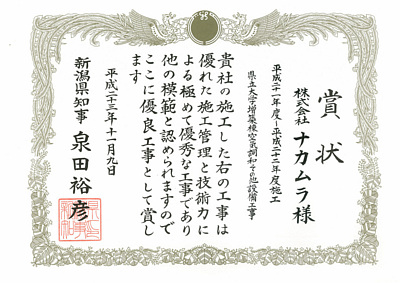 賞状
株式会社 ナカムラ様
平成二十一年度～平成二十三年度施工
県立大学増築棟空気調和その他設備工事
貴社の施工した右の工事は
優れた施工管理と技術力に
よる極めて優秀な工事であり
他の模範と認められますので
ここに優良工事として賞し
ます
平成二十三年十一月九日
新潟県知事 泉田裕彦